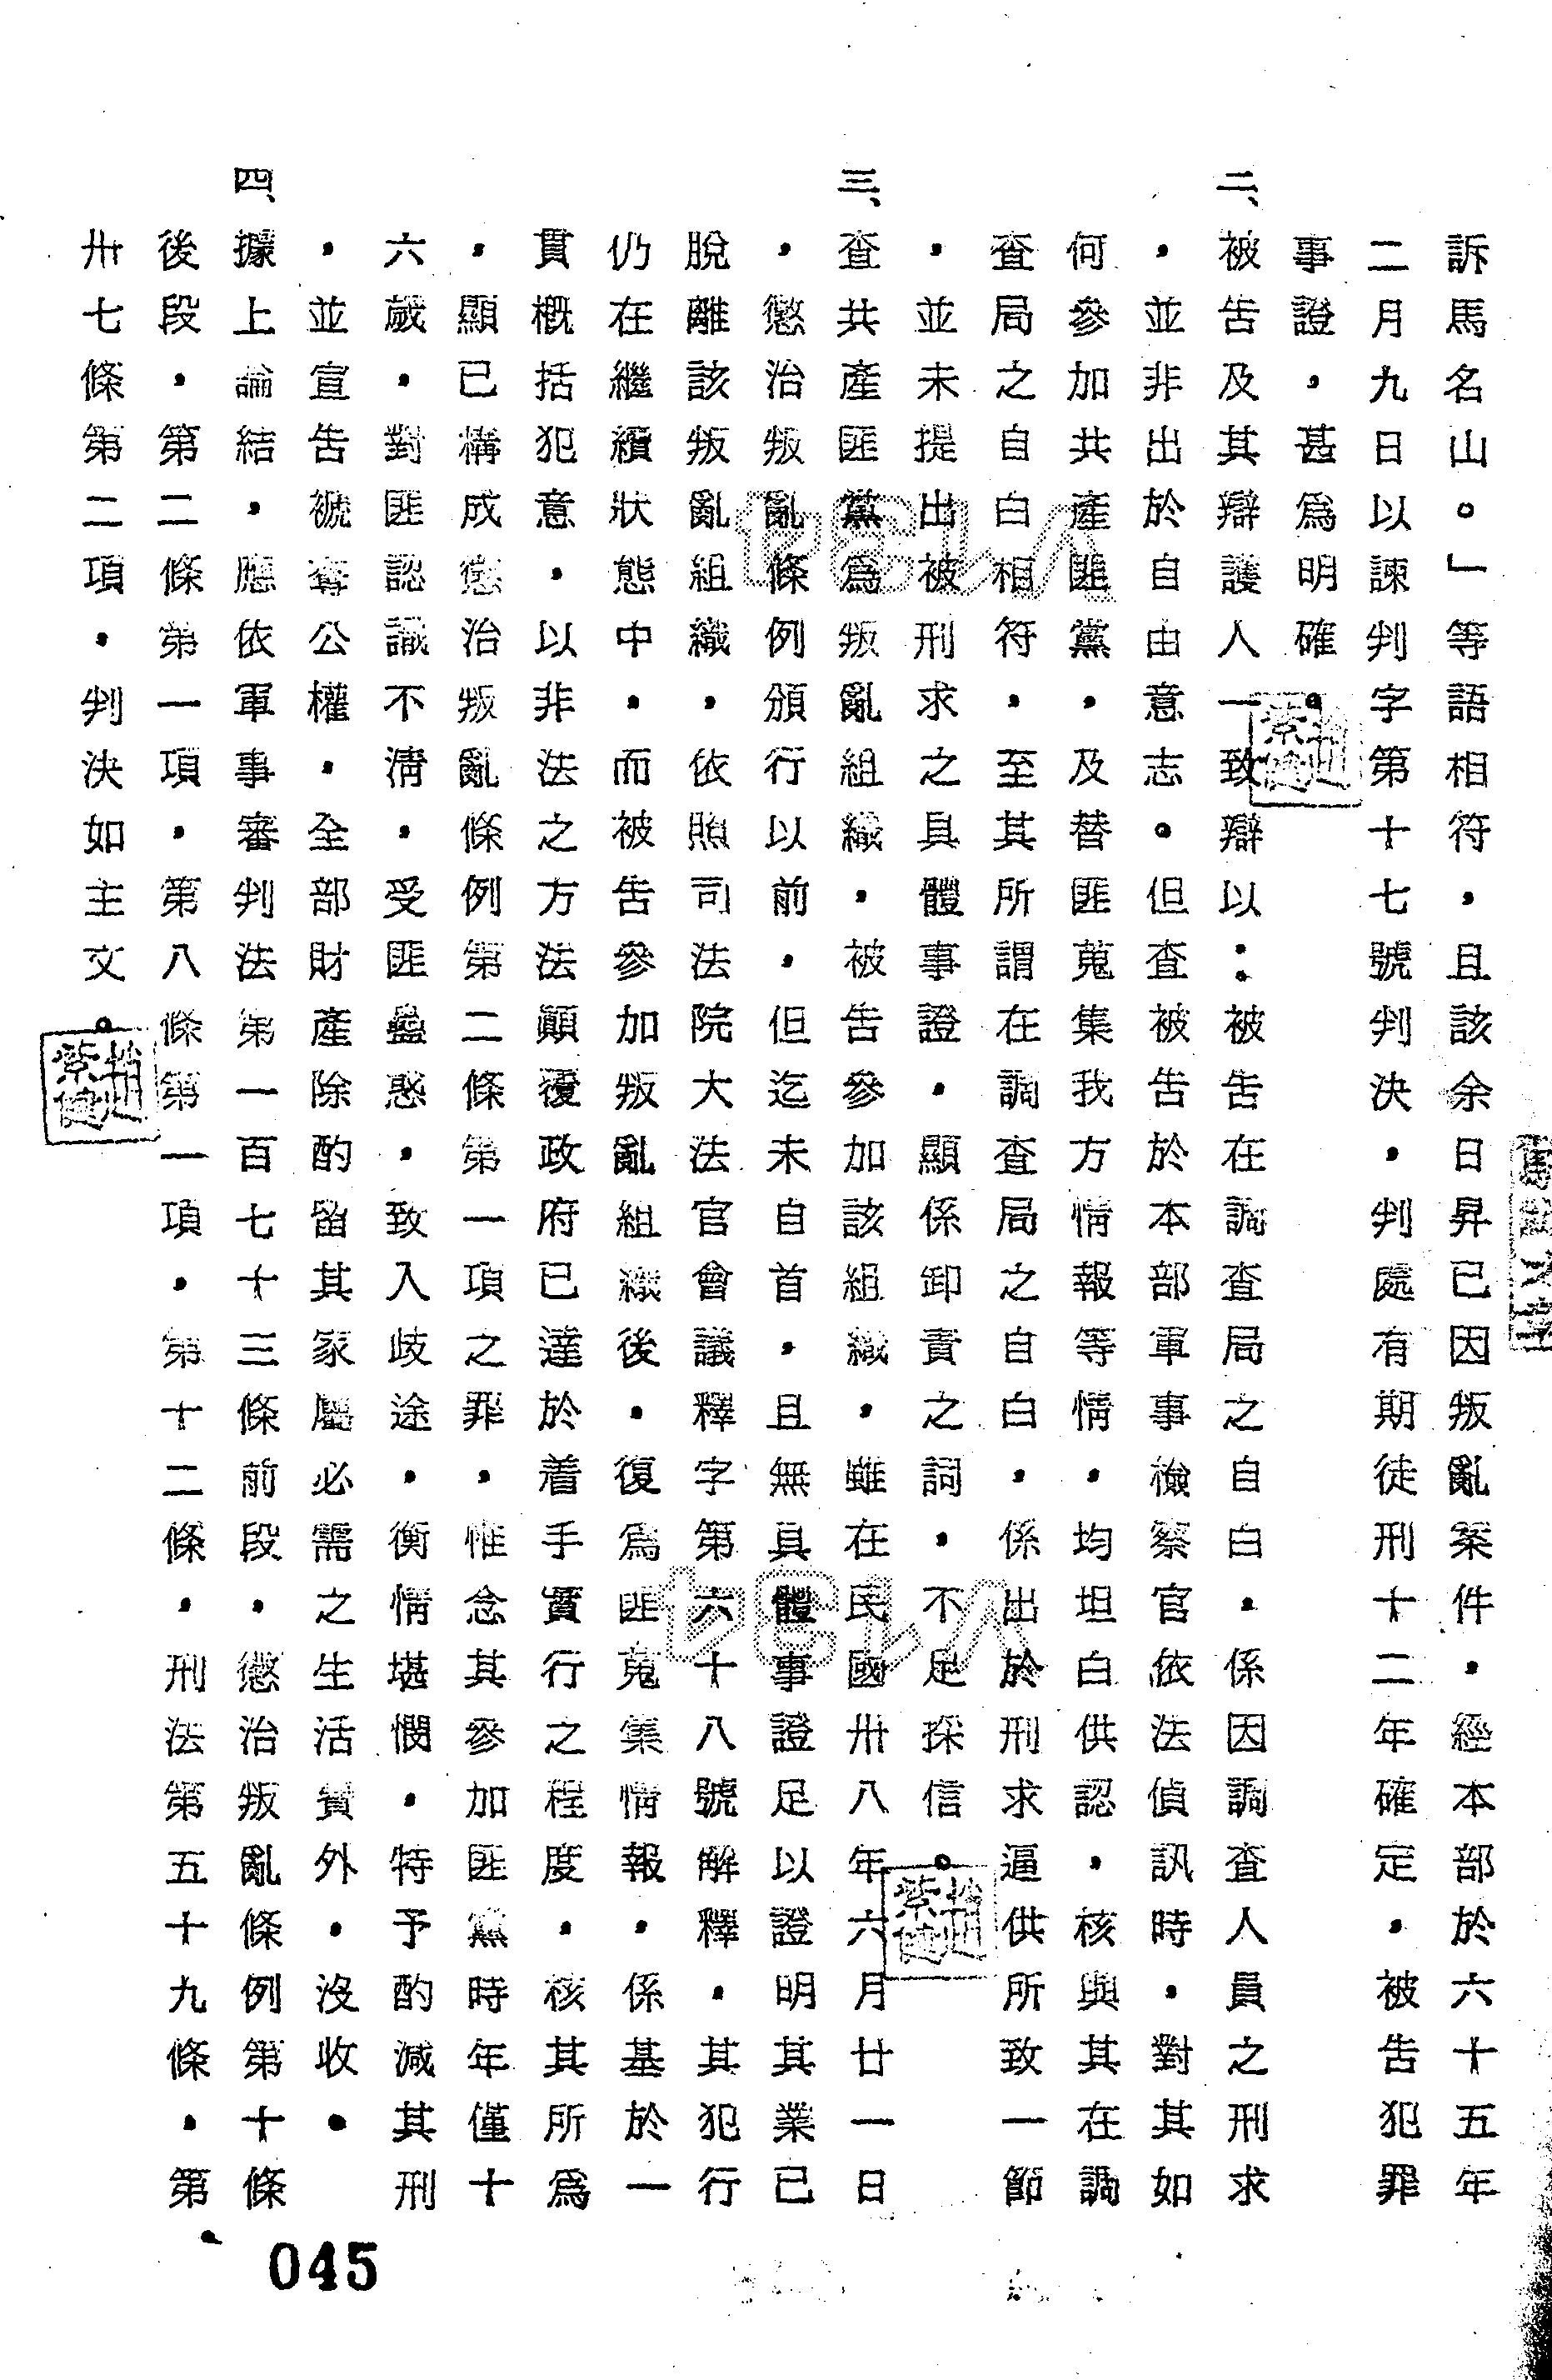 訴馬名山。」等語相符，且該余日昇已因叛亂案件，經本部於六十五年
二月九日以諫判字第十七號判決，判處有期徒刑十二年確定，被告犯罪
事證，甚為明確。
二、被告及其辯護人一致辯以：被告在調查局之自白，係因調查人員之刑求
，並非出於自由意志。但查被告於本部軍事檢察官，依法偵訊時，對其如
何參加共產匪黨，及替匪蒐集我方情報等情，均坦白供認，核與其在調
查局之自白相符，至其所謂在調查局之自白，係出於刑求逼供所致一節
，並未提出被刑求之具體事證，顯係卸責之詞，不足採信。
三、查共產匪黨為叛亂組織，被告參加該組織，雖在民國卅八年六月廿一日
，懲治叛亂條例頒行以前，但迄未自首，且無具體事證足以證明其業已
脫離該叛亂組織，依照司法院大法官會議釋字第六十八號解釋，其犯行
仍在繼續狀態中，而被告參加叛亂組織後，復為匪蒐集情報，係基於一
貫概括犯意，以非法之方法顛覆政府已達於着手實行之程度，核其所為
，顯已構成懲治叛亂條例第二條第一項之罪，惟念其參加匪黨時年僅十
六歲，對匪認識不清，受匪蠱惑，致入歧途，衡情堪憫，特予酌減其刑
，並宣告褫奪公權，全部財產除酌留其家屬必需之生活費外，沒收，
四、據上論結，應依軍事審判法第一百七十三條前段，懲治叛亂條例第十條
後段，第二條第一項，第八條第一項，第十二條，刑法第五十九條，第
卅七條第二項，判決如主文。
045